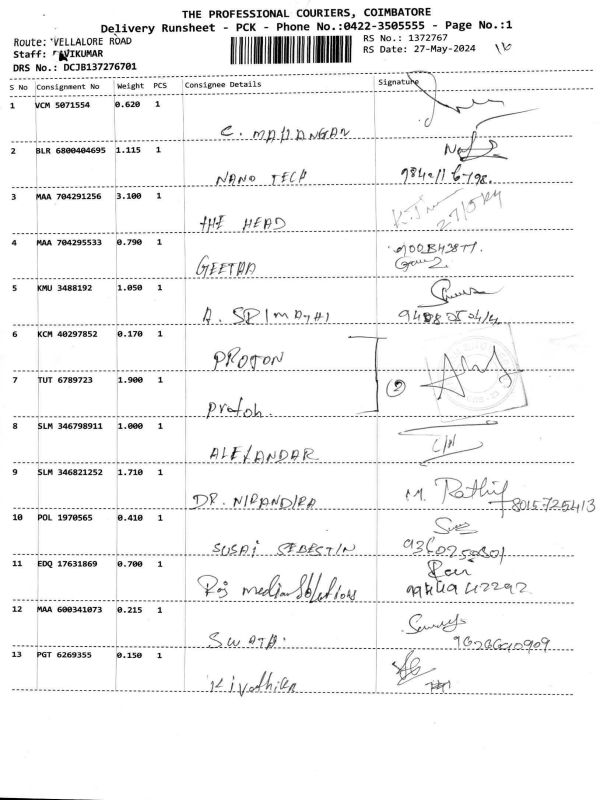 THE PROFESSIONAL COURIERS, COIMBATORE
Delivery Runsheet - PCK - Phone No.:0422-3505555 - Page No.:1
Route: VELLALORE ROAD
RS No.: 1372767
Staff: RAVIKUMAR
RS Date: 27-May-2024
DRS No.: DCJB137276701
S No Consignment No Weight PCS Consignee Details Signature
1 VCM 5071554 0.620 1
C. MAHANGAR
2 BLR 6800404695 1.115 1
NANO TECH
3 MAA 704291256 3.100 1
THE HEAD 27/5/24
4 MAA 704295533 0.790 1
GEETHA
5 KMU 3488192 1.050 1
A. SRIMATHI
6 KCM 40297852 0.170 1
PROTON
7 TUT 6789723 1.900 1 2
Proton.
8 SLM 346798911 1.000 1
ALEXANDAR
9 SLM 346821252 1.710 1
DR. NIRANDIRA M. Rathif 8015725413
10 POL 1970565 0.410 1
SUSAI SEBESTIN
11 EDQ 17631869 0.700 1
Raj media Solutions
12 MAA 600341073 0.215 1
SWATA.
13 PGT 6269355 0.150 1